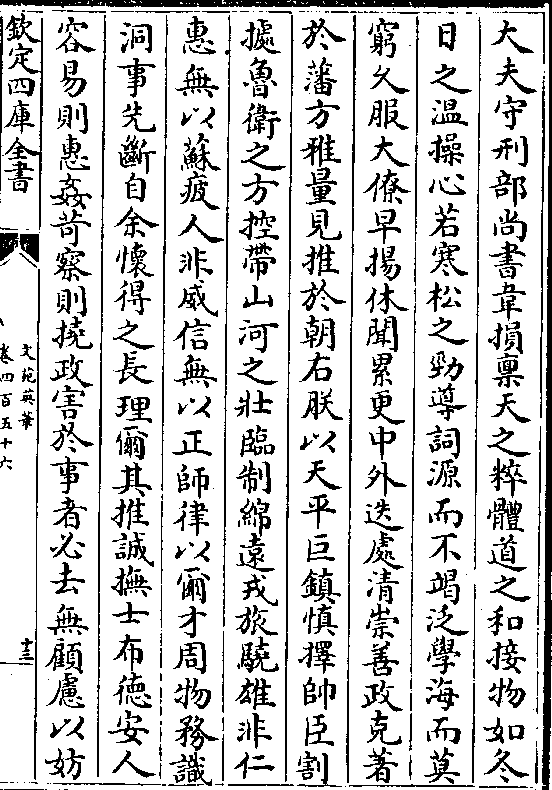 大夫守刑部尚書韋損禀天之粹體道之和接物如冬
日之温操心若寒松之勁導詞源而不竭泛學海而莫
窮久服大僚早揚休聞累更中外迭處清崇善政克著
於藩方雅量見推於朝右朕以天平巨鎮慎擇帥臣割
據魯衛之方控帶山河之壯臨制綿遠戎旅驍雄非仁
惠無以蘇疲人非威信無以正師律以爾才周物務識
洞事先斷自余懷得之長理爾其推誠撫士布德安人
容易則惠姦苛察則撓政害於事者必去無顧慮以妨
欽定四庫全書
文苑英華
卷四百五十六
十三